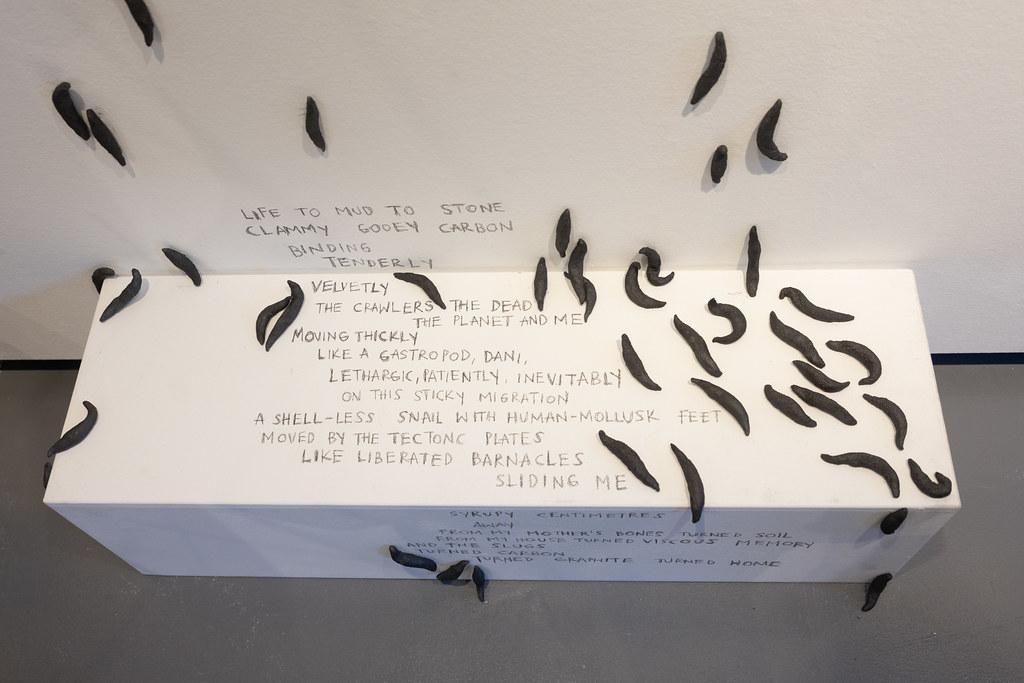 LIFE TO MUD TO STONE
CLAMMY GOOEY CARBON
BINDING
TENDERLY
VELVETLY
THE CRAWLERS THE DEAD
THE PLANET AND ME
MOVING THICKLY
LIKE A GASTROPOD, DANI,
LETHARGIC, PATIENTLY, INEVITABLY
ON THIS STICKY MIGRATION
A SHELL-LESS SNAIL WITH HUMAN-MOLLUSK FEET
MOVED BY THE TECTONC PLATES
LIKE LIBERATED BARNACLES
SLIDING ME
SYRUPY CENTIMETRES
AWAY
FROM MY MOTHER'S BONES TURNED SOIL
FROM MY HOUSE TURNED VISCOUS MEMORY
AND THE SLUGS
TURNED CARBON
TURNED GRAPHITE TURNED HOME